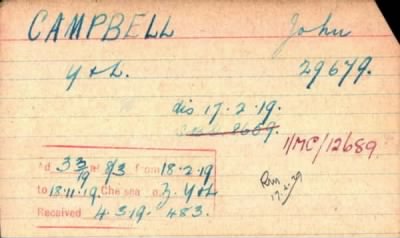 CAMPBELL John
Y & L. 29679.
dis 17.2.19.
1/MC/12689
Ad 33/19 at 8/3 from 18.2.19
to 18.11.19. Chelsea o Z. Y&L
Received 4.3.19. 483.
17.4.39